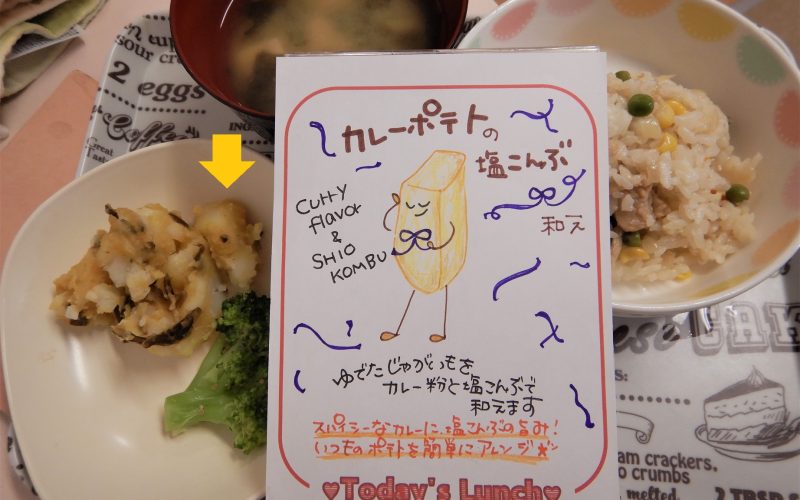 カレーポテトの
塩こんぶ
和え
CURRY
flavor
&
SHIO
KOMBU
ゆでたじゃがいもを
カレー粉と塩こんぶで
和えます
スパイシーなカレーに、塩こんぶの旨み!
いつものポテトを簡単にアレンジ
♥Today's Lunch♥
sour
2 eggs
Coffee
Great
CAK
crackers,
crumbs
melted